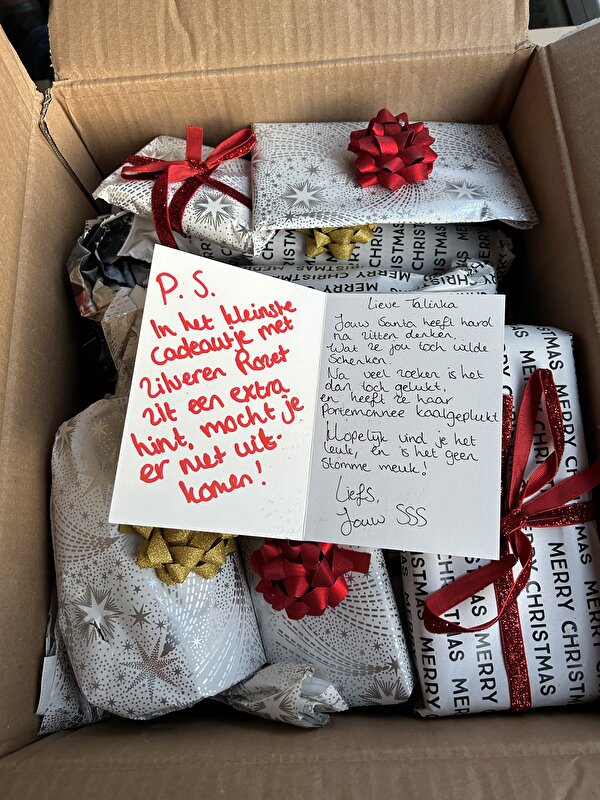 P.S.
In het kleinste
cadeautje met
zilveren Rozet
zit een extra
hint, mocht je
er niet uit-
komen!
Lieve Talinka
Jouw Santa heeft hard
na zitten denken,
Wat ze jou toch wilde
schenken.
Na veel zoeken is het
dan toch gelukt,
en heeft ze haar
Portemonnee kaalgeplukt.
Hopelijk vind je het
leuk, en is het geen
stomme meuk!
Liefs,
Jouw SSS
MERRY CHRISTMAS
MERRY CHRISTMAS
MERRY CHRISTMAS
MERRY CHRISTMAS